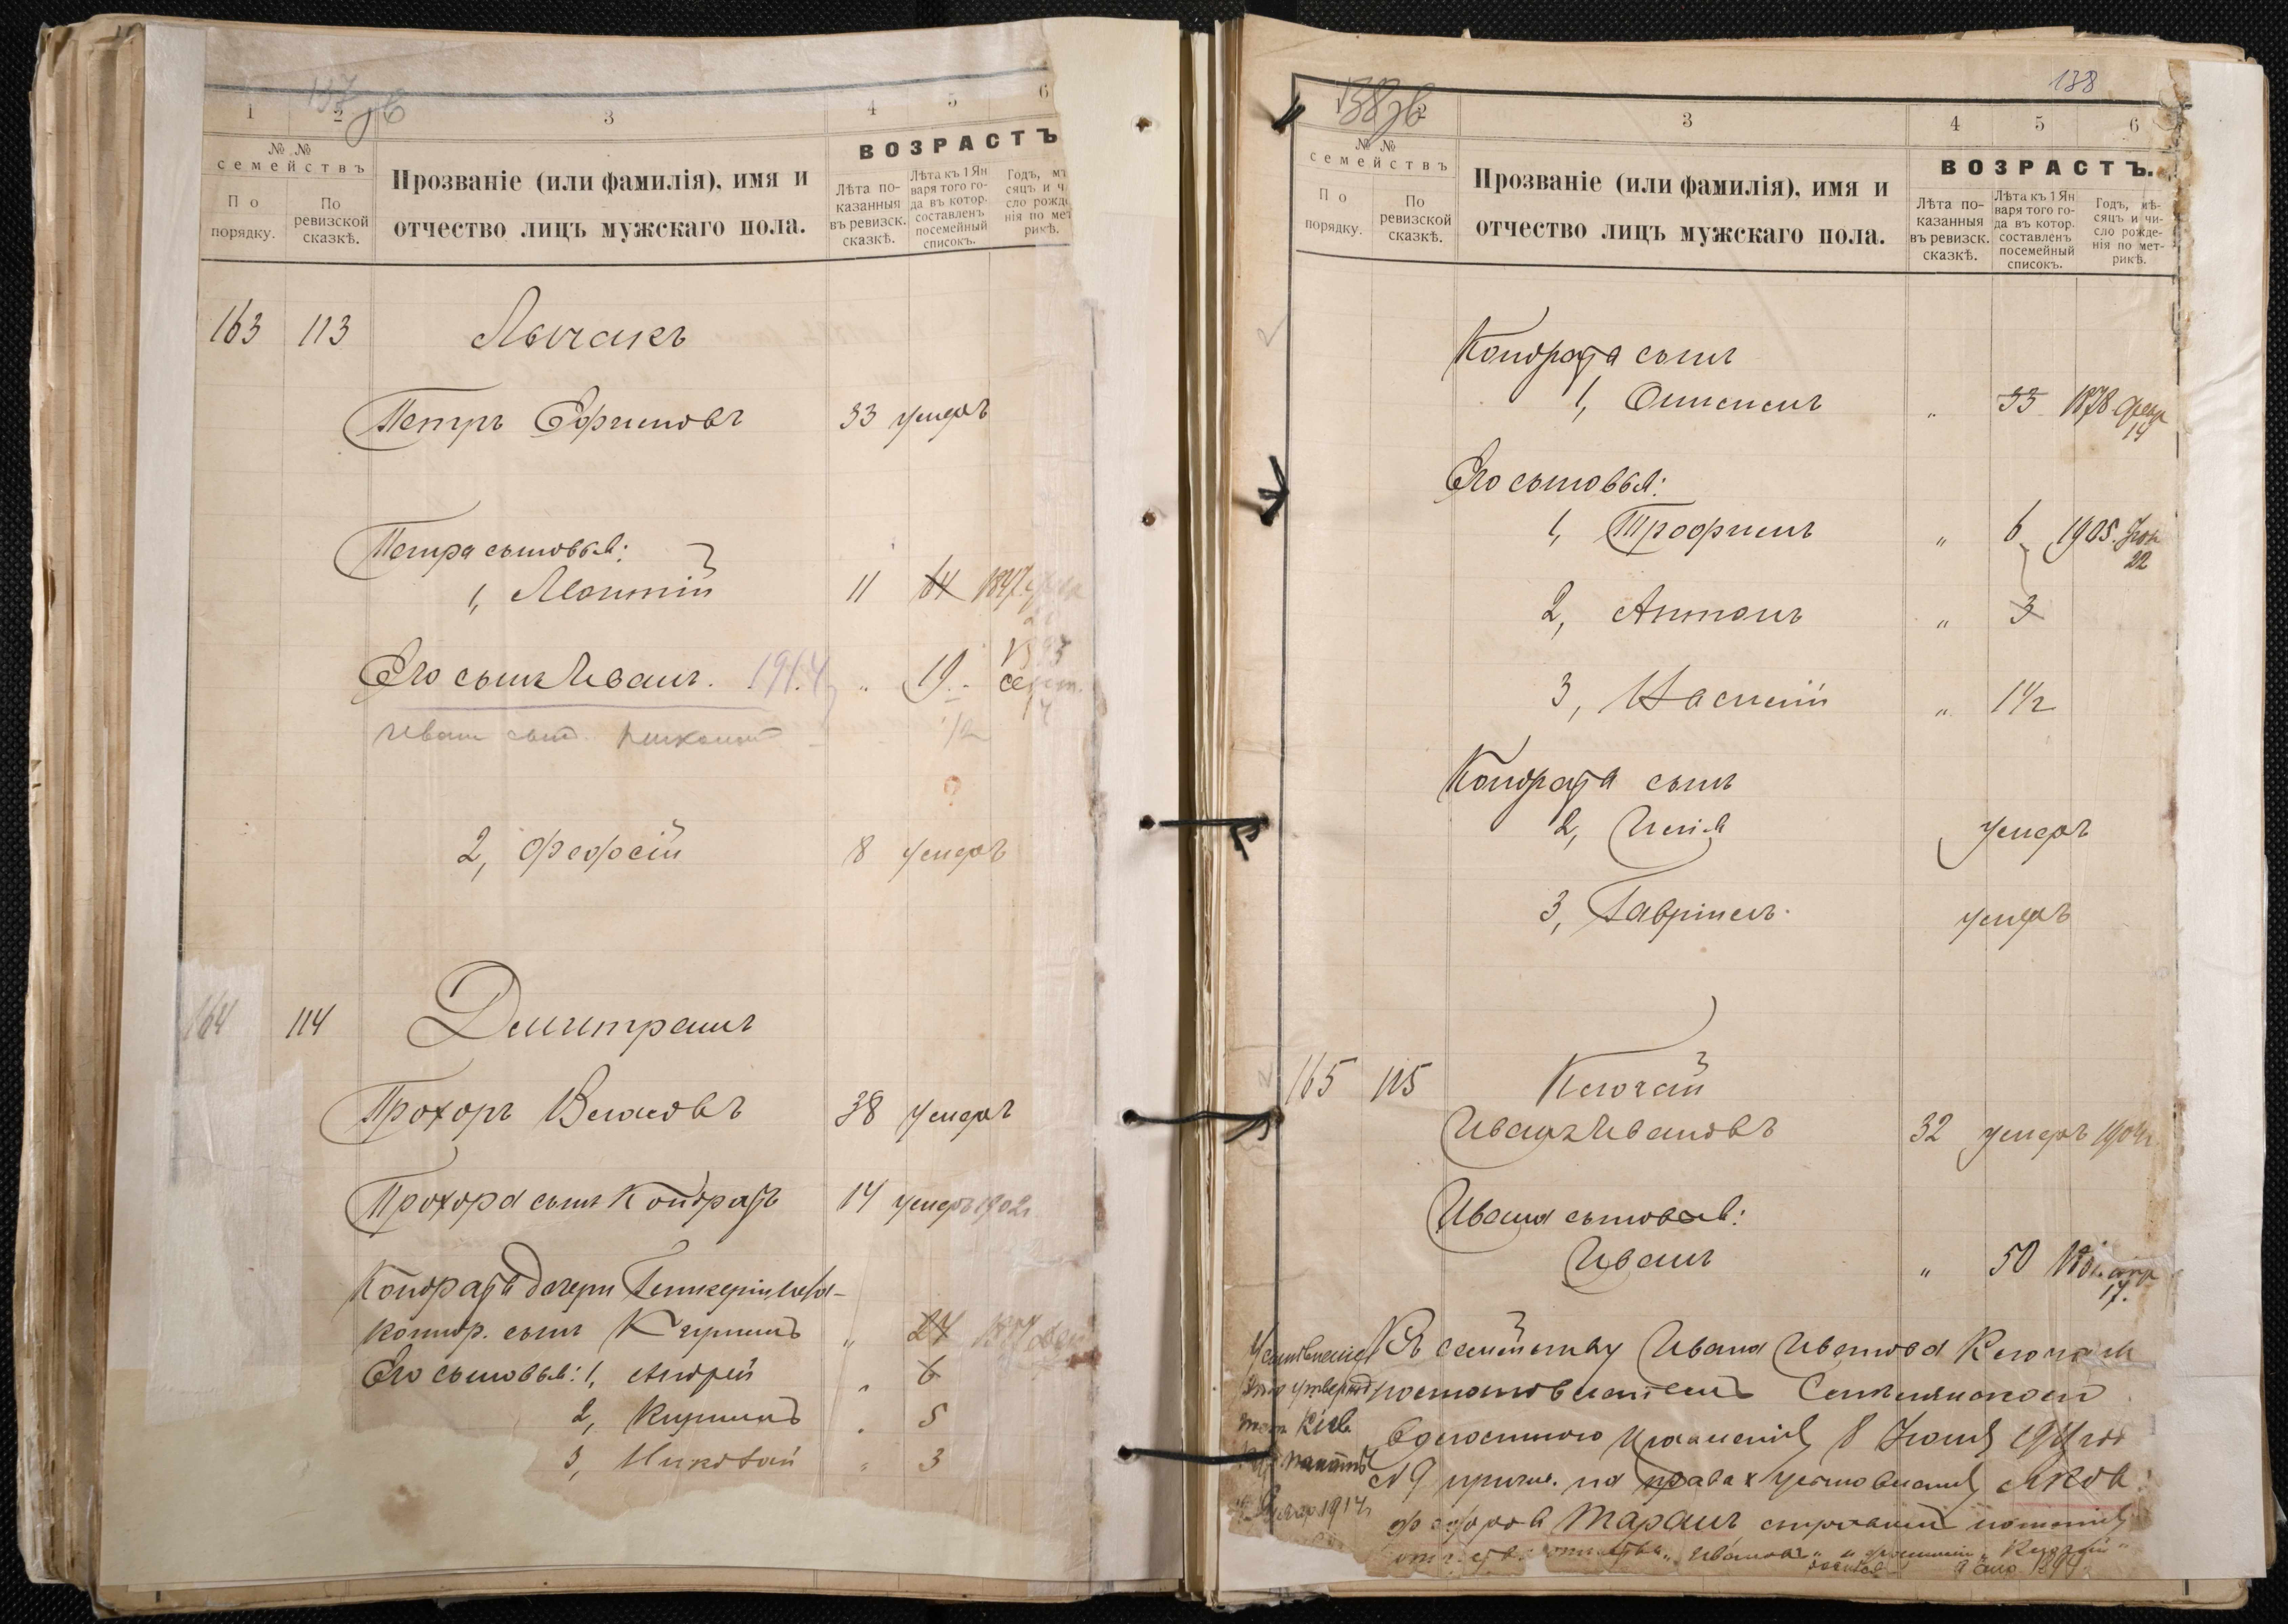 137 зв
1 2 3 4 5 6
№ №
семействъ
По
порядку.
По
ревизской
сказкѣ.
Прозваніе (или фамилія), имя и
отчество лицъ мужскаго пола.
ВОЗРАСТЪ
Лѣта по-
казанныя
въ ревизск.
сказкѣ.
Лѣта къ 1 Ян
варя того го-
да въ котор.
составленъ
посемейный
списокъ.
Годъ, мѣ
сяцъ и ч
сло рожде
нія по мет
рикѣ.
163 113 Лычакъ
Петръ Ефимовъ 33 умеръ
Петра сыновья:
1, Леонтій 11 64 1847
Его сынъ Иванъ. 1914 " 19. 1893 сент. 14
Иванъ сын. 1/2
?
2, Федосій 8 умеръ
164 114 Димитрашъ
Прохоръ Власовъ 38 умеръ
Прохора сынъ Кондратъ 14 умеръ 1902г.
Кондрата дочери Гликеріи
сынъ Кирилъ " 24 1887
Его сыновья: 1, Андрей " 6
2, Кирилъ " 5
3, Николай " 3
138
138 зв
1 2 3 4 5 6
№ №
семействъ
По
порядку.
По
ревизской
сказкѣ.
Прозваніе (или фамилія), имя и
отчество лицъ мужскаго пола.
ВОЗРАСТЪ.
Лѣта по-
казанныя
въ ревизск.
сказкѣ.
Лѣта къ 1 Ян
варя того го-
да въ котор.
составленъ
посемейный
списокъ.
Годъ, мѣ-
сяцъ и чи-
сло рожде-
нія по мет-
рикѣ.
Кондрата сынъ
1, Онисимъ " 33 1878 февр 14
Его сыновья:
1, Трофимъ " 6 1905. 22
2, Антонъ " 3
3, Василій " 1 1/2
Кондрата сынъ
2, Илія умеръ
3, Гавріилъ. умеръ
165 115 Ключай
Иванъ Ивановъ 32 умеръ 1904г.
Ивана сыновья:
Иванъ " 50 1861. апр 17.
Къ семейству Ивана Иванова Ключая
постановленіемъ
Волостного Правленія 8 1911 года
№ 9 причис. на правахъ усыновленія Яковъ
Федоровъ Таранъ
1914г